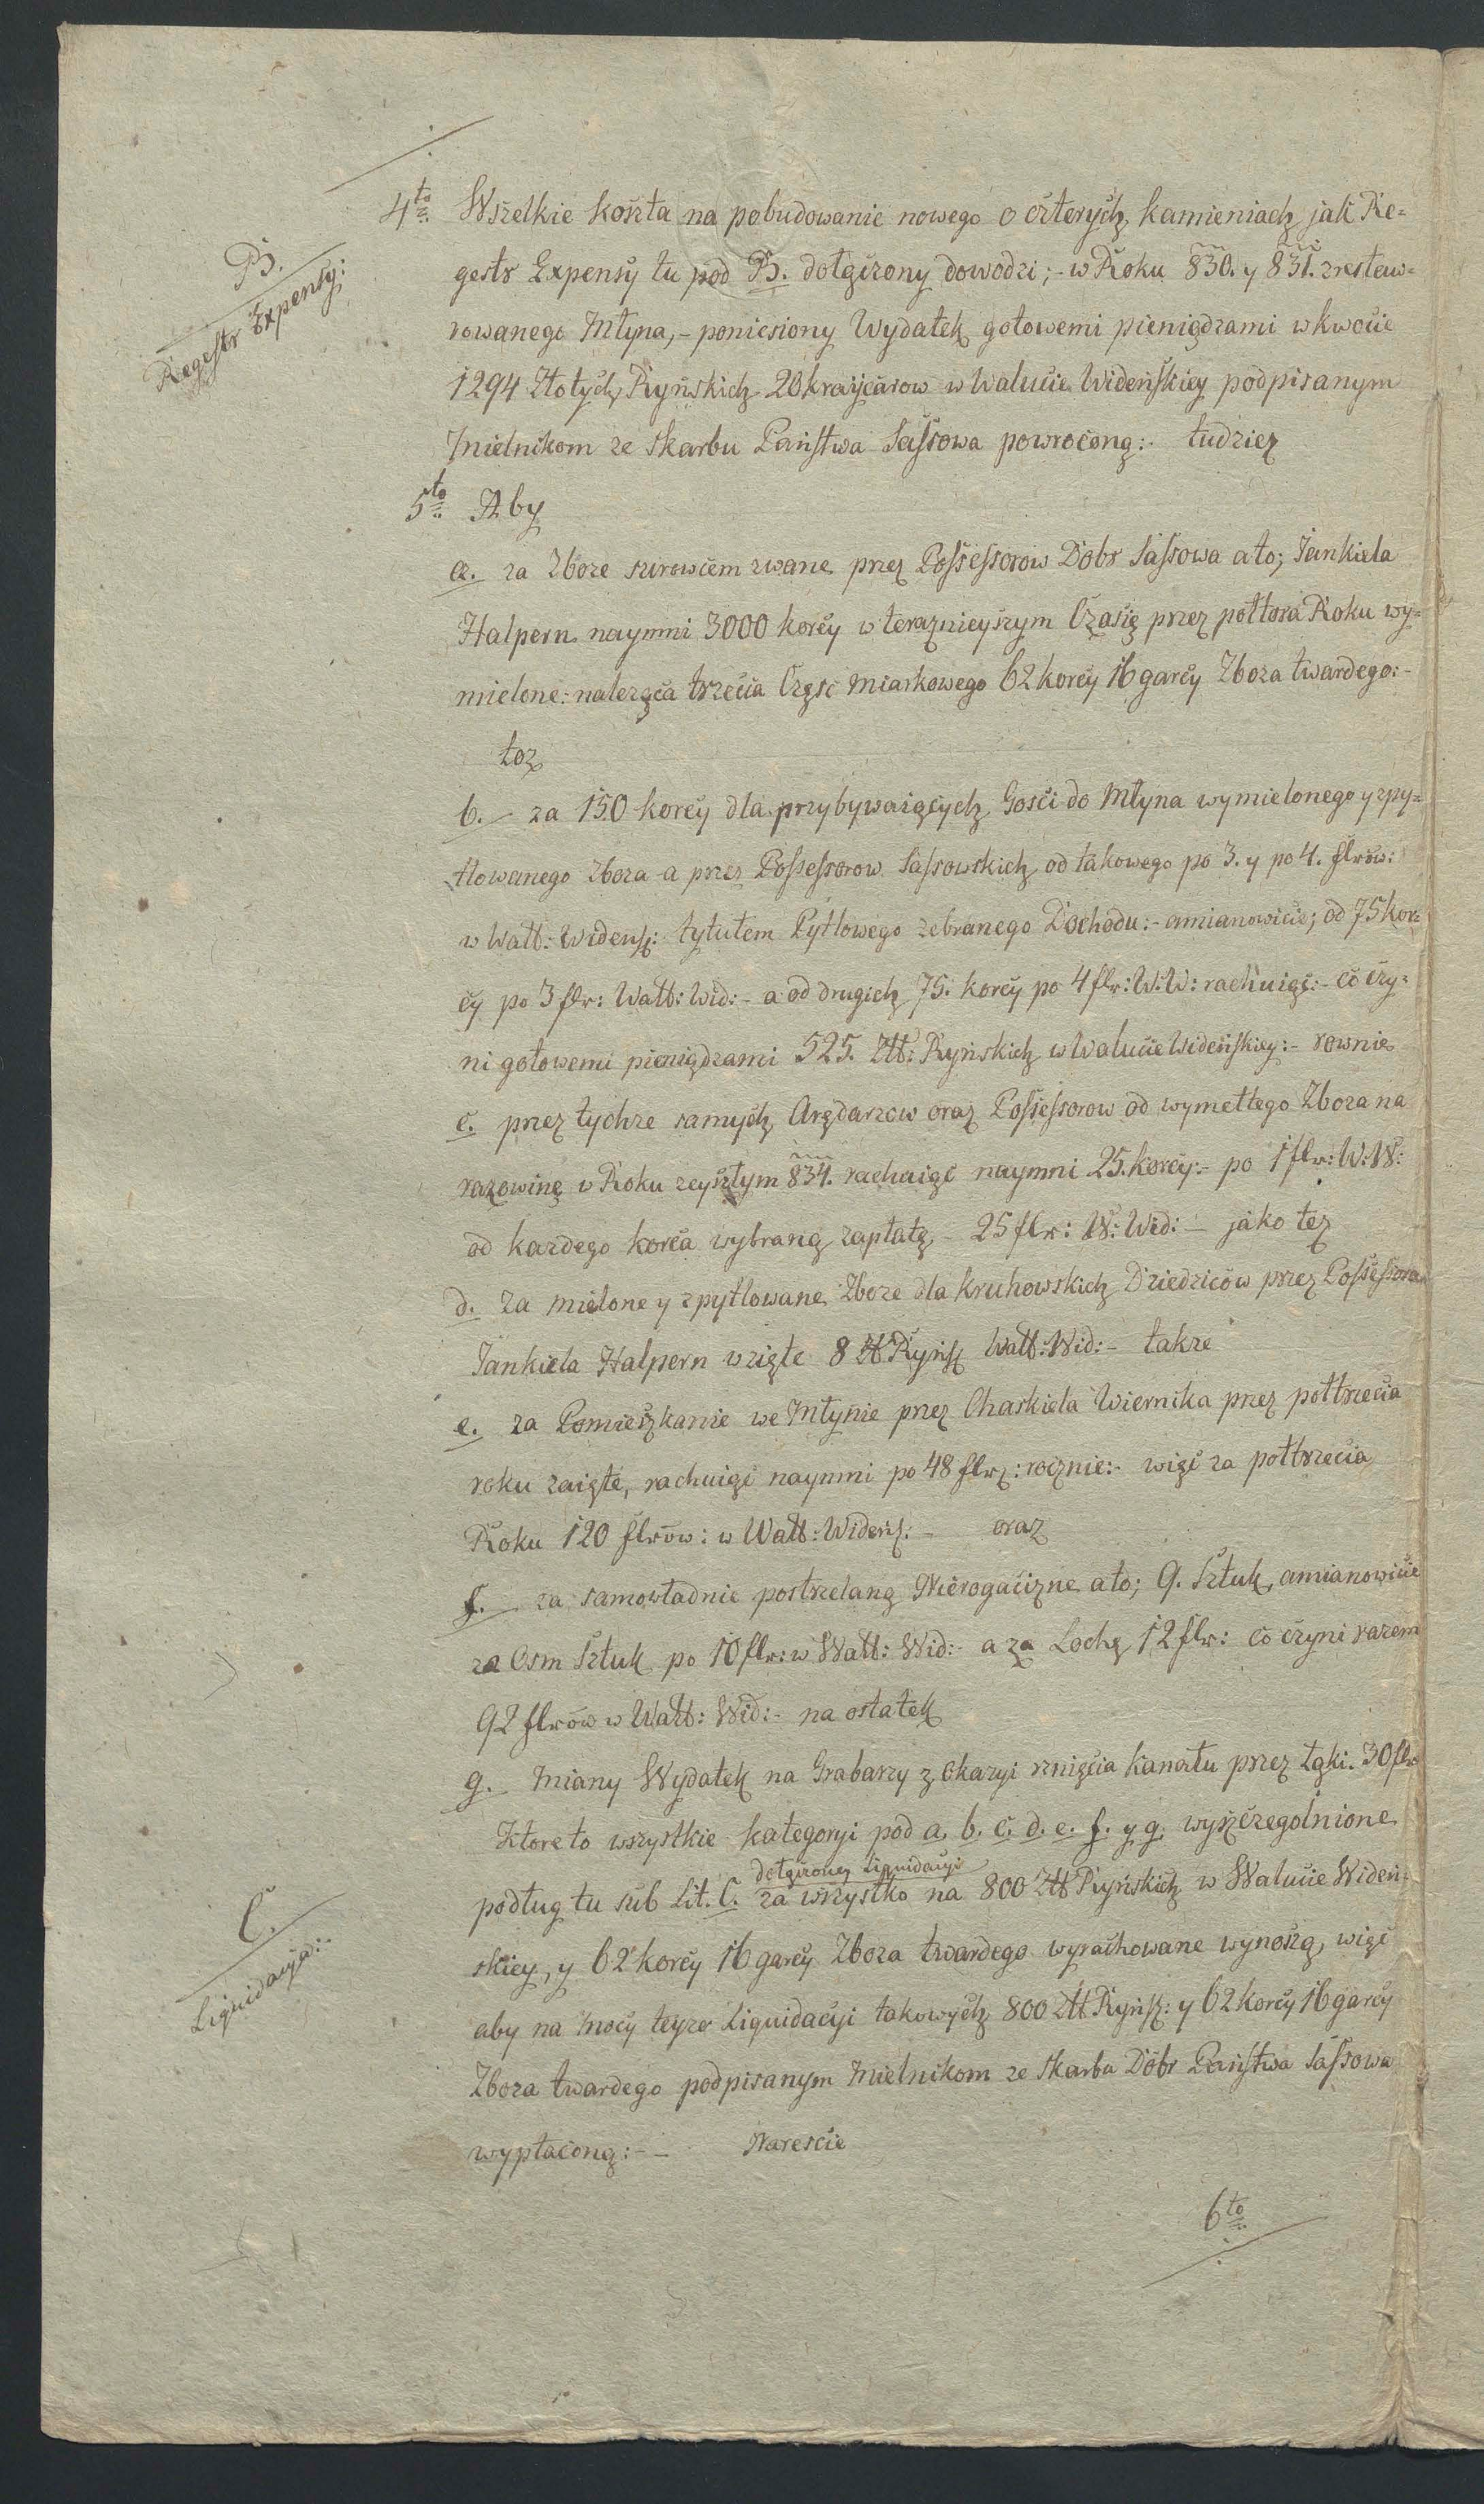 4to Wszelkie koszta na pobudowanie nowego o czterych kamieniach jak Re=
B.
Regestr Expensy:
gestr Expensy tu pod B. dołączony dowodzi; - w Roku 830. y 831. zrestaw=
rowanego Młyna, - poniesiony Wydatek gotowemi pieniądzami w kwocie
1294 Złotych Ryńskich 20 kraycarow w Walucie Wideńskiey podpisanym
Mielnikom ze skarbu Państwa Sassowa powrocono: tudziez
5to Aby
a. za Zboze surowcem zwane przez Possessorow Dobr Sassowa a to; Jankiela
Halpern naymni 3000 korcy w teraznieyszym Czasie przez połtora Roku wy=
mielone: nalezącą trzecia Część Miarkowego 62 korcy 16 garcy Zboza twardego: -
toz
b. - za 150 korcy dla przybywaiących Gosci do Młyna wymielonego y zpy=
tlowanego zboza a przez Possessorow Sassowskich od takowego po 3. y po 4. flrów:
w Walt: Widensk: tytułem Pytlowego zebranego Dochodu: - a mianowicie; od 75 kor=
cy po 3 flr: Walt: Wid: - a od drugich 75. korcy po 4 flr: W: W: rachuiąc: - co czy=
ni gotowemi pieniądzami 525. Złt: Ryńskich w Walucie Wideńskiey: - rownie
c. przez tychze samych Arędarzow oraz Possessorow od wymełtego Zboza na
razowinę w Roku zeyszłym 834. rachuiąc naymni 25. korcy: - po 1 flr: W: W:
od kazdego korca wybraną zapłatę - 25 flr: W: Wid: - jako tez
d. za mielone y zpytlowane Zboze dla kruhowskich Dziedziców przez Possessora
Jankiela Halpern wzięte 8 Złt Ryńsk Walt: Wid: - takze
e. za Pomieszkanie we Młynie przez Chaskiela Wiernika przez połtrzecia
roku zaięte, rachuiąc naymni po 48 flr: rocznie: - więc za połtrzecia
Roku 120 flrów: w Walt: Wideńs: - oraz
f. - za samowładnie postrzelaną Nierogaciznę a to; 9. Sztuk, a mianowicie
za Osm Sztuk po 10 flr: w Walt: Wid: - a za Lochę 12 flr: co czyni razem
92 flrów w Walt: Wid: - na ostatek
g. - Miany Wydatek na Grabarzy z Okazyi rznięcia kanału przez Łąki. 30 flr
Które to wszystkie kategoryi pod a. b. c. d. e. f. y g. wyszczegolnione
dołączoney Liquidacyi
podług tu sub Lit. C. za wszystko na 800 Złt Ryńskich w Walucie Wideń=
C.
Liquidacyia:
skiey, y 62 korcy 16 garcy Zboza twardego wyrachowane wynoszą, więc
aby na mocy teyze Liquidacyi takowych 800 Złt Ryńsk: y 62 korcy 16 garcy
Zboza twardego podpisanym Mielnikom ze skarbu Dóbr Państwa Sassowa
wypłacono: - - Nareście
6to